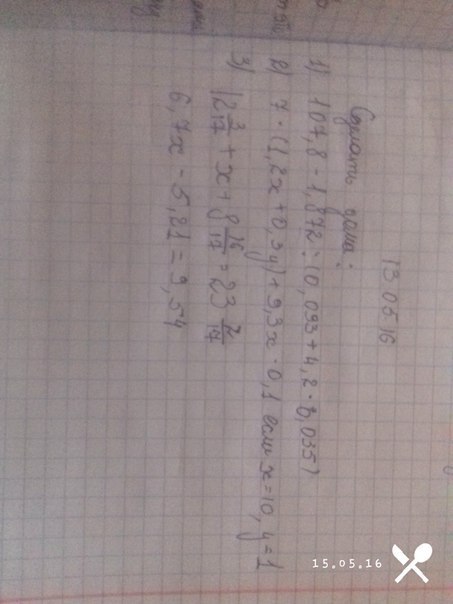 13 05 16
Сделать дома:
1) 107,8 - 1,872 : (0,093 + 4,2 · 0,035)
2) 7 · (1,2x + 0,3y) + 9,3x · 0,1 если x = 10, y = 1
3)
12 3/17 + x + 8 16/17 = 23 2/17
6,7x - 5,21 = 9,54
15.05.16